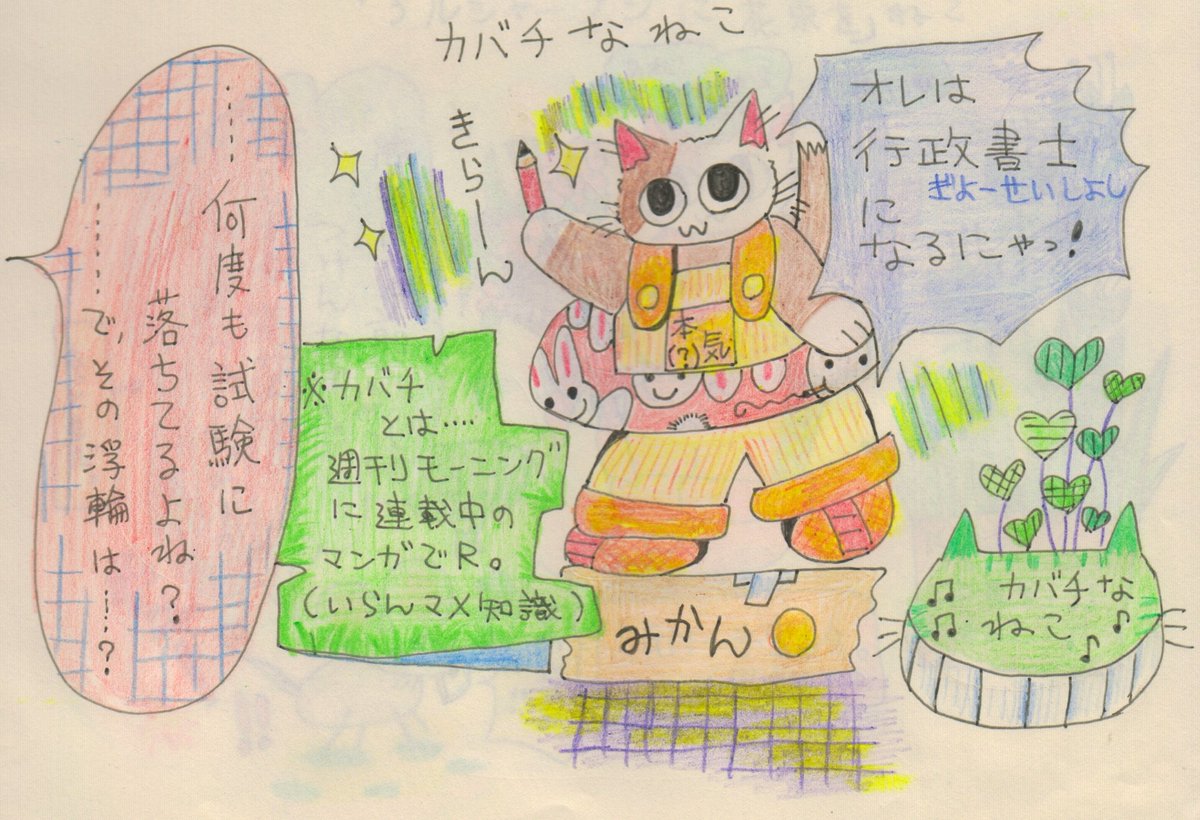 カバチなねこ
オレは
行政書士
ぎょーせいしょし
に
なるにゃっ!
きらーん
本気
(?)
……何度も試験に
落ちてるよね?
………で、その浮輪は…?
※カバチ
とは….
週刊モーニング
に連載中の
マンガでR。
(いらんマメ知識)
みかん
カバチな
ねこ